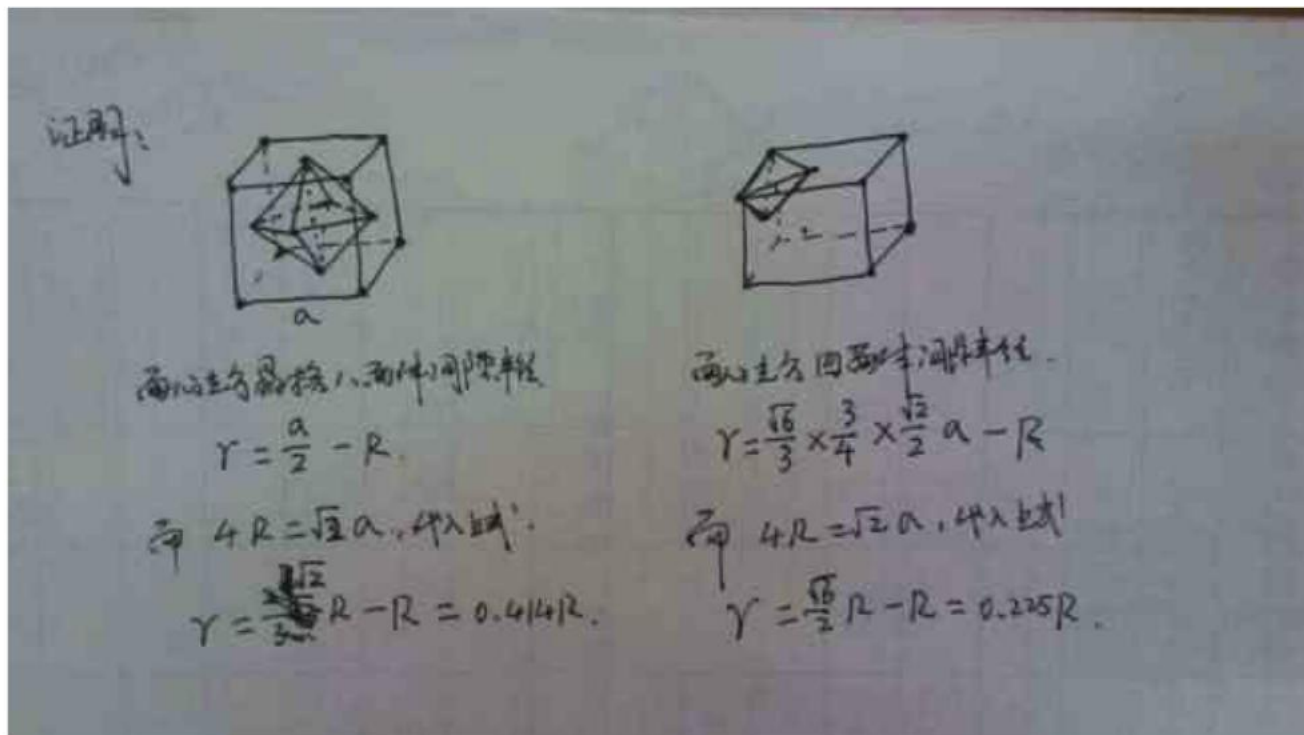 证明:
a
面心立方晶格八面体间隙半径
r = a/2 - R.
而 4R = √2 a, 代入上式.
r = √2 R - R = 0.414R.
面心立方四面体间隙半径.
r = √6/3 × 3/4 × √2/2 a - R
而 4R = √2 a, 代入上式
r = √6/2 R - R = 0.225R.